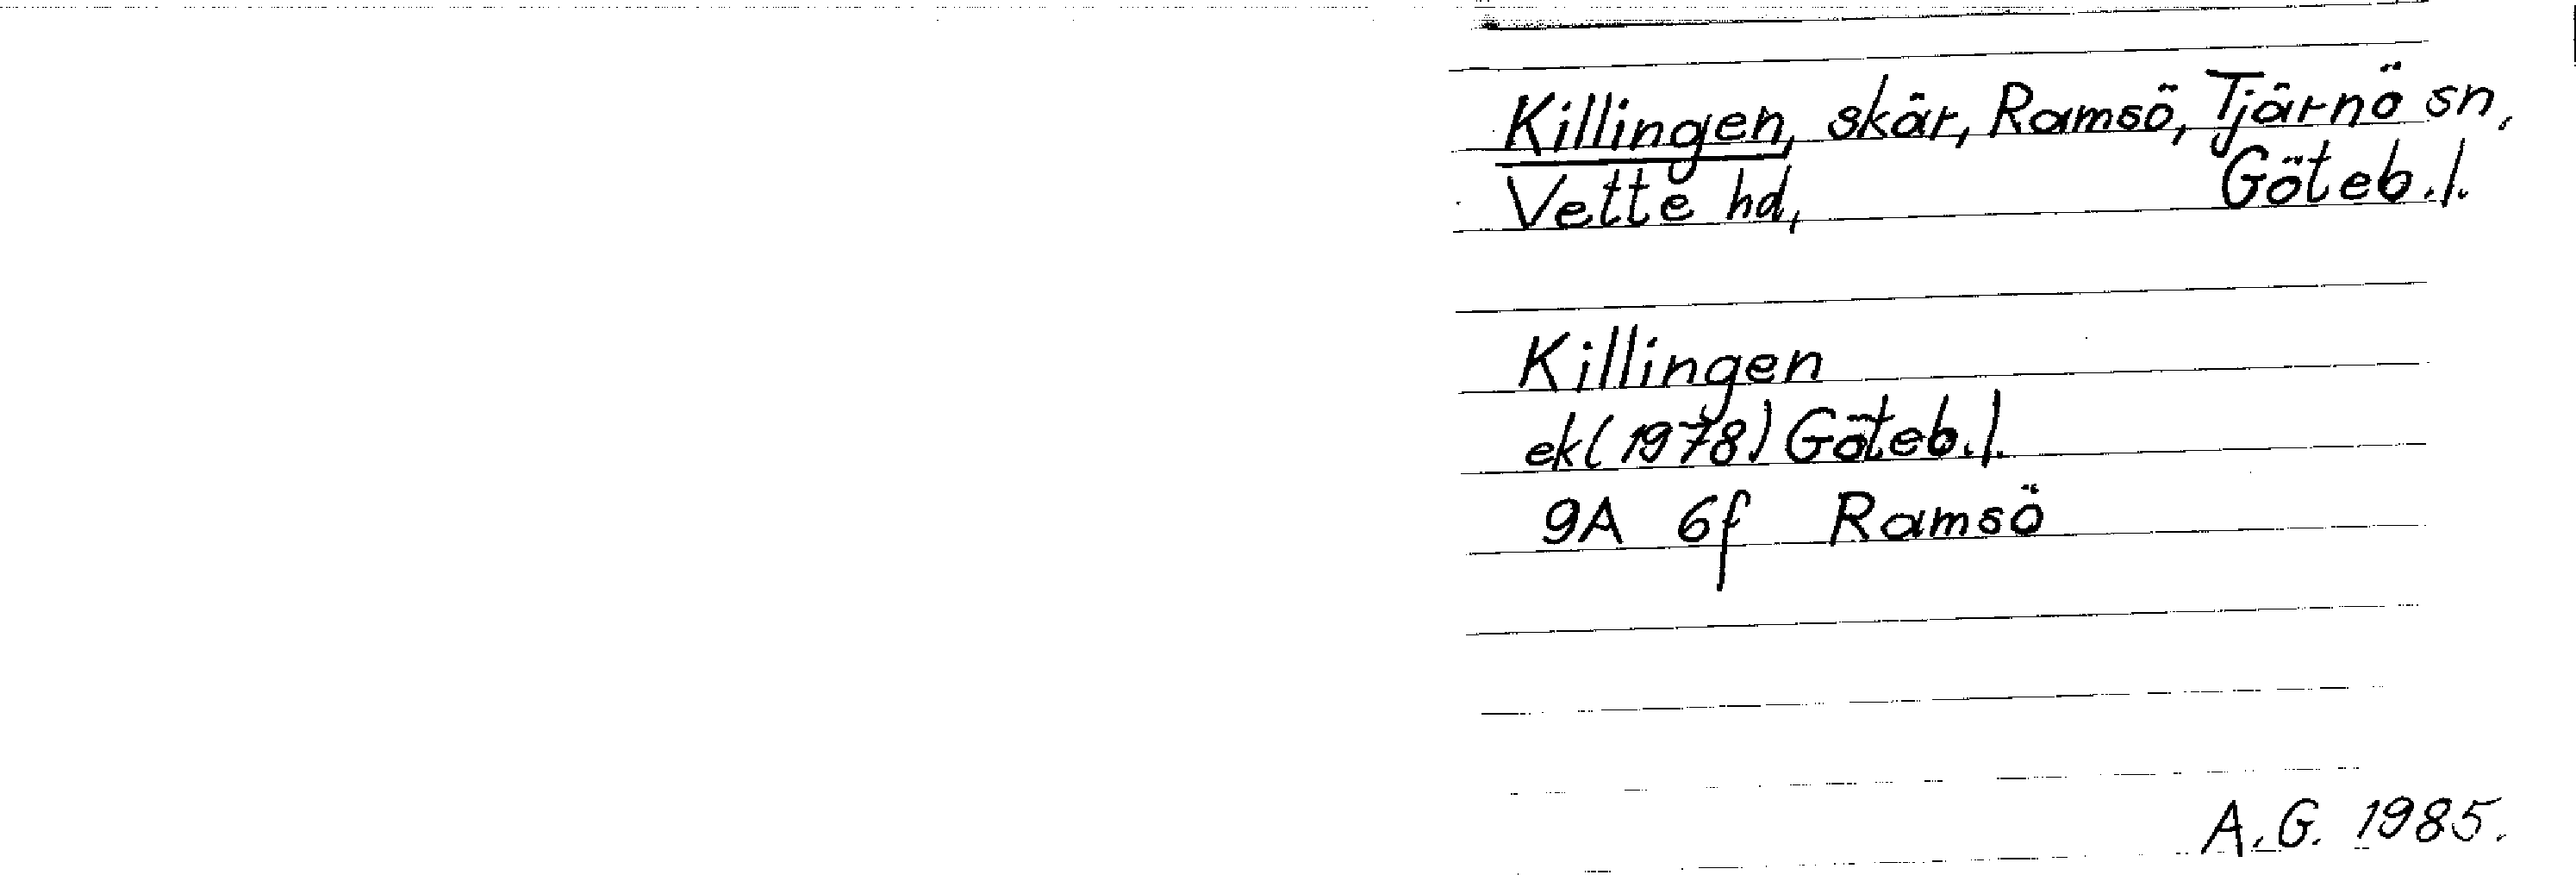 Killingen, skär, Ramsö, Tjärnö sn,
Vette hd, Göteb.l.
Killingen
ek(1978) Göteb.l.
9A 6f Ramsö
A.G. 1985.